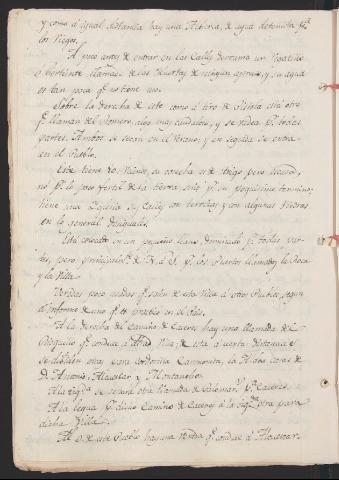 y como á igual distancia hay una Alberca, de agua detenida pª
los Riegos.
A poco antes de entrar en las Calles derrama un
ó vertiente llamada de las Huertas de ningun aprecio, y su agua
es tan poca qᵉ no tiene uso.
Sobre la derecha de este como á tiro de Pistola está otro
qᵉ llaman del Romero algo mas caudaloso, y se vadea pʳ todas
partes. Ambos se secan en el Verano; y en seguida se entra
en el Pueblo.
Este tiene 70 Vecinos, su cosecha es de trigo pero escasa,
no pʳ lo poco fertil de su tierra, sino pʳ su pequeñisimo termino;
tiene una Iglesia, sus Calles son terrizas y con algunas piedras
en lo general desiguales.
Está colocado en un pequeño llano, dominado pʳ todas par-
tes, pero principalmᵗᵉ de N. á S. pʳ los Puertos llamados la Roca
y la Villa.
Veredas poco usadas qᵉ salen de esta Villa á otros Pueblos, segun
el informe de uno qᵉ es practico en el Pais.
A la derecha del Camino de Caceres hay una llamada de
qᵉ conduce á dha Villa; de esta á corta distancia se
dividen otras para Cordovilla, Carmonita, la Aldea, casas de
D. Antonio, Alcuescar y Montanchez.
A la Yzqᵈᵃ se separa otra llamada de pª Caceres.
A la legua pʳ dicho Camino de Caceres á la Yzqᵈᵃ otra para
dicha Villa.
Al O. de este Pueblo hay una Vereda qᵉ conduce á Alcuescar.